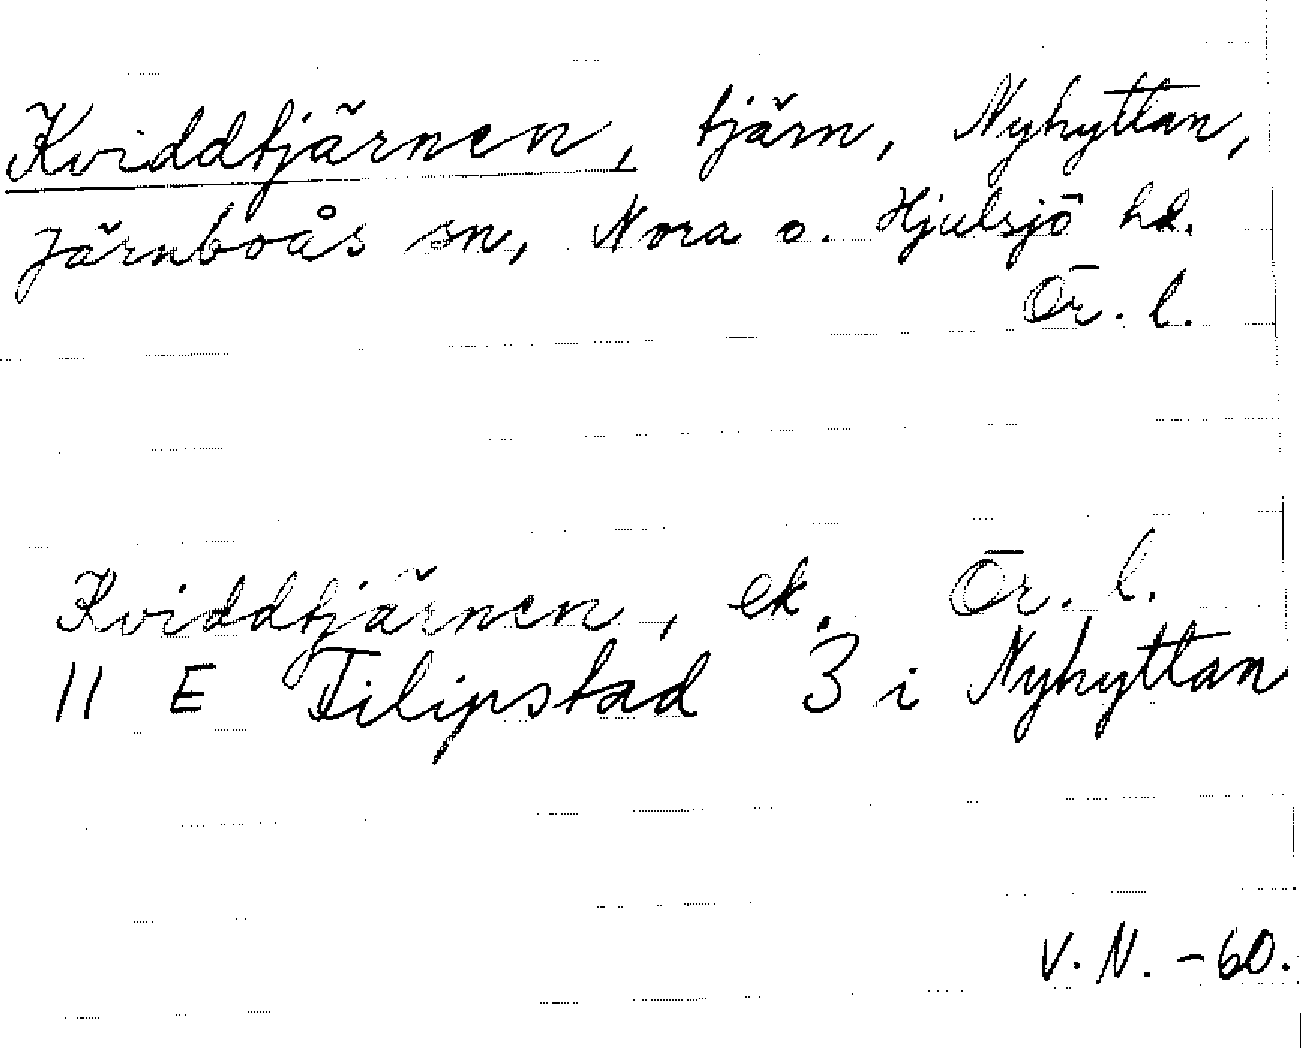 Kviddtjärnen, tjärn, Nyhyttan,
Järnboås sn, Nora o. Hjulsjö hd.
Ör. l.
Kviddtjärnen, ek. Ör. l.
11 E Filipstad 3 i Nyhyttan
V. N. - 60.